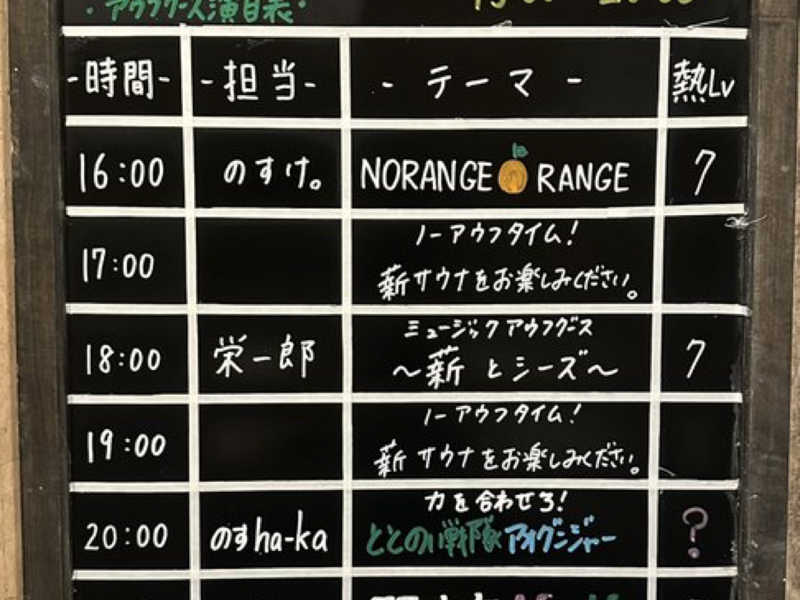 ・アウフグース演目表・
-時間- -担当- - テーマ - 熱Lv
16:00 のすけ。 NORANGE RANGE 7
17:00 ノーアウフタイム!
薪サウナをお楽しみください。
18:00 栄一郎 ミュージックアウフグース 7
〜薪とシーズ〜
19:00 ノーアウフタイム!
薪サウナをお楽しみください。
20:00 のすha-ka 力を合わせろ! ?
ととのい戦隊アオグンジャー